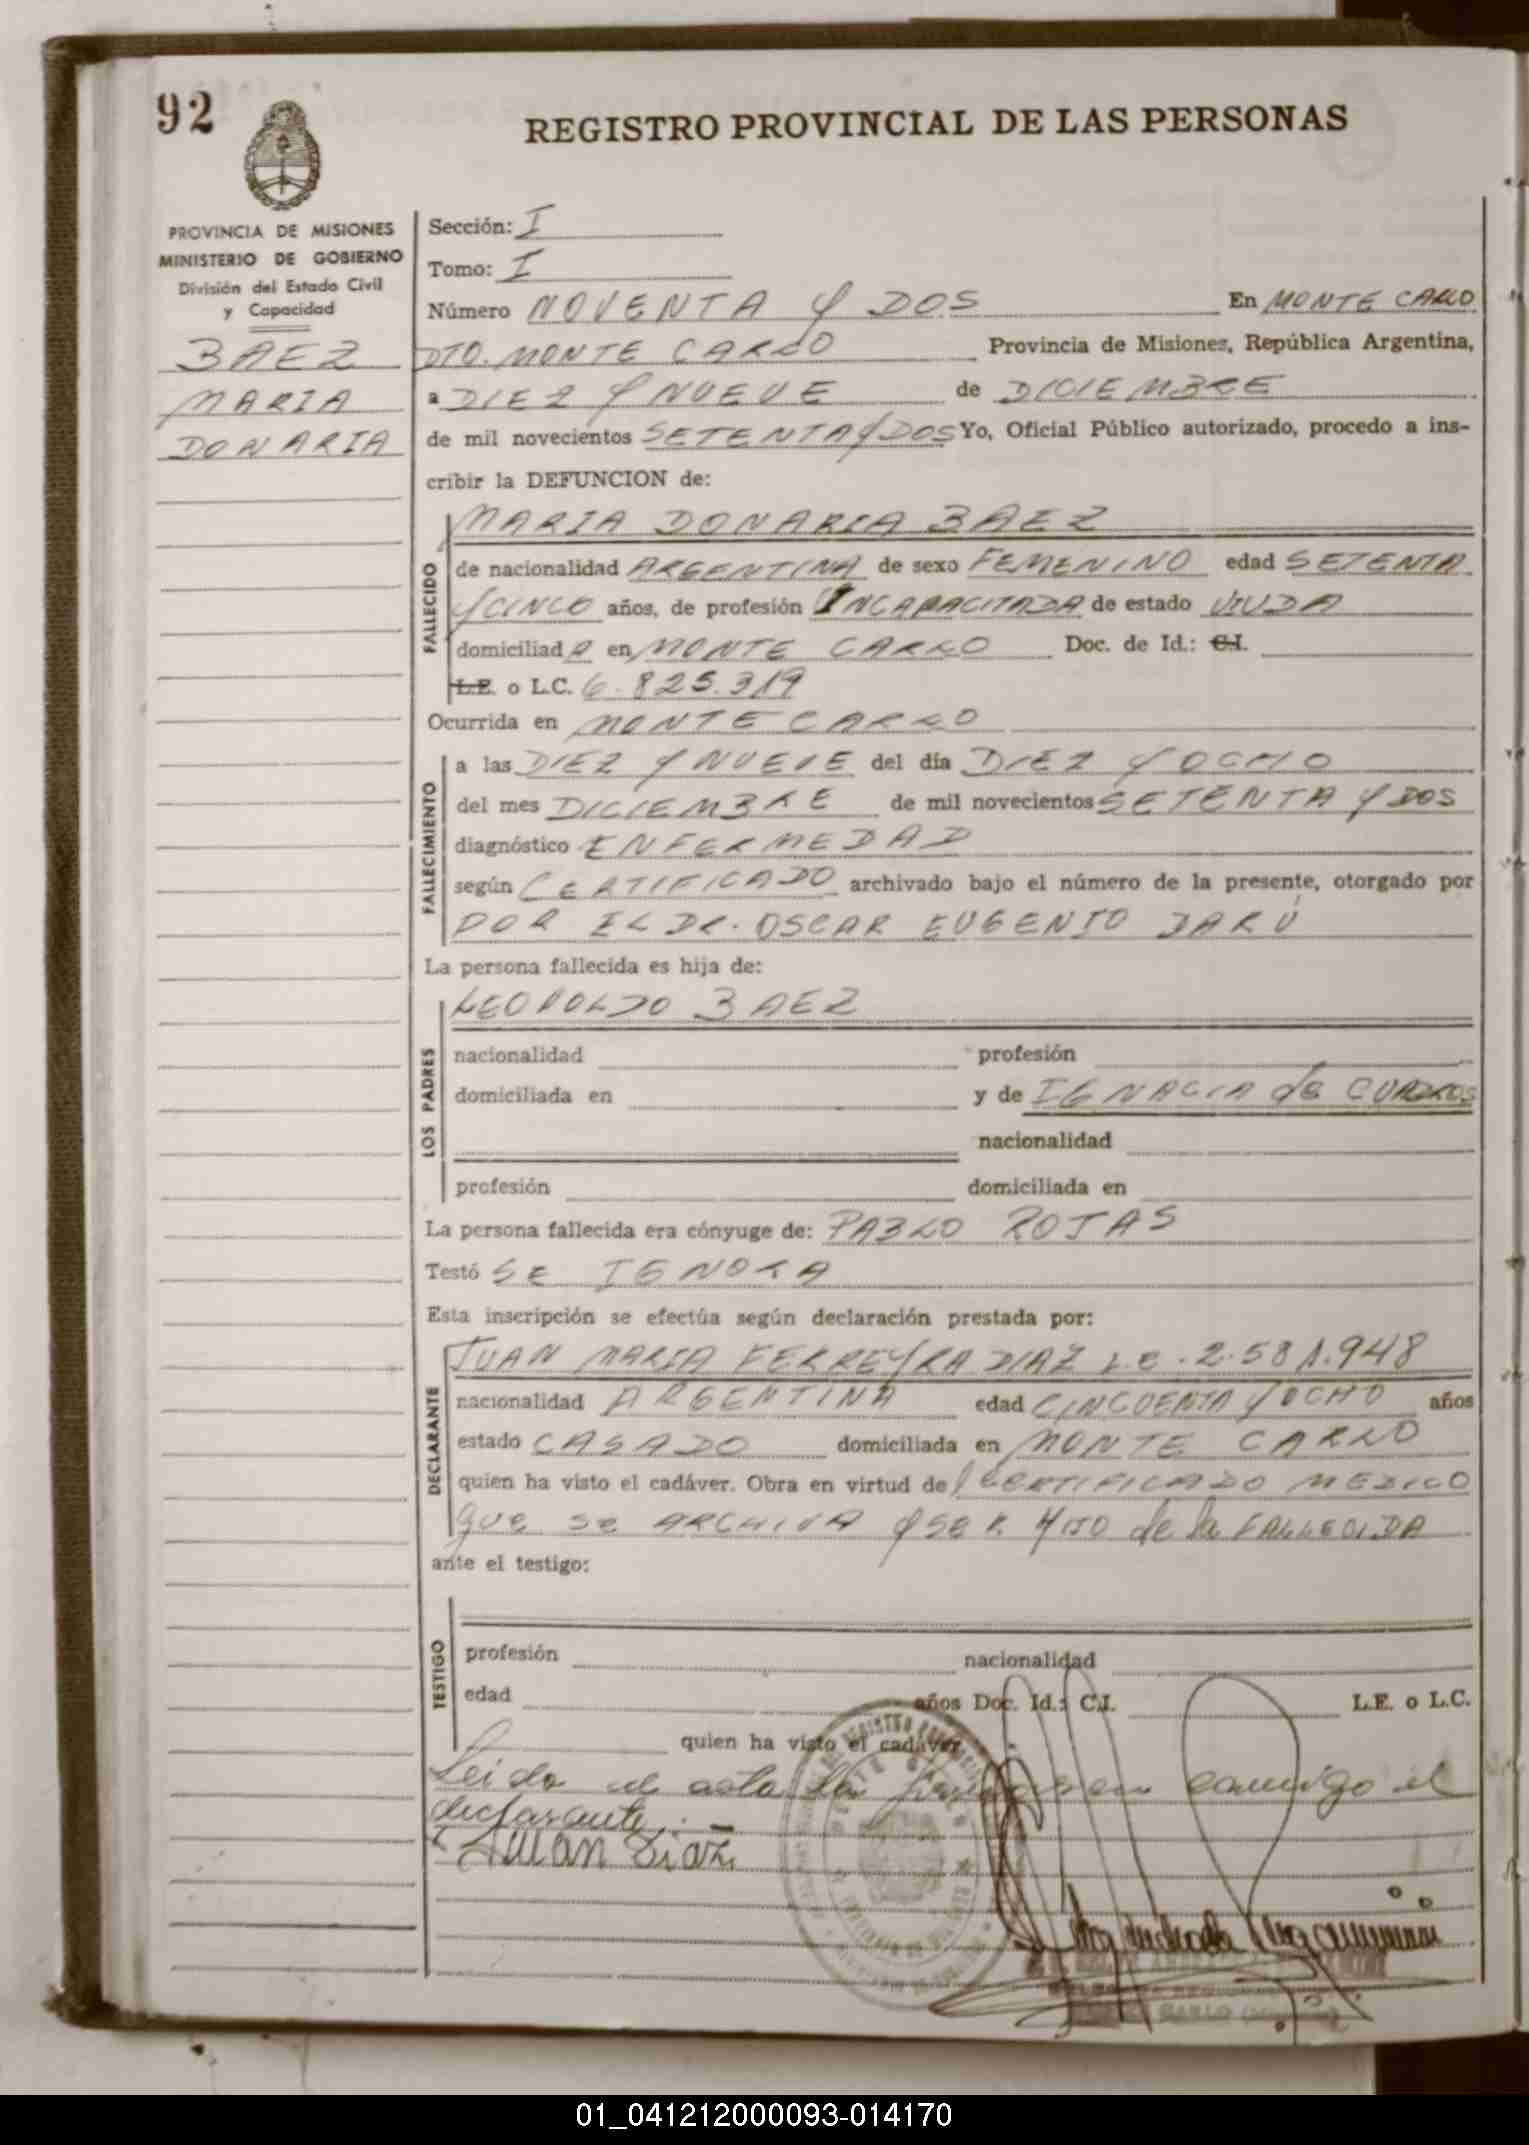 92
REGISTRO PROVINCIAL DE LAS PERSONAS
PROVINCIA DE MISIONES
MINISTERIO DE GOBIERNO
División del Estado Civil
y Capacidad
BAEZ
MARIA
DONARIA
Sección: I
Tomo: I
Número NOVENTA Y DOS En MONTE CARLO
DTO. MONTE CARLO Provincia de Misiones, República Argentina,
a DIEZ Y NUEVE de DICIEMBRE
de mil novecientos SETENTA Y DOS Yo, Oficial Público autorizado, procedo a ins-
cribir la DEFUNCION de:
FALLECIDO
MARIA DONARIA BAEZ
de nacionalidad ARGENTINA de sexo FEMENINO edad SETENTA
Y CINCO años, de profesión INCAPACITADA de estado VIUDA
domiciliada en MONTE CARLO Doc. de Id.: C.I.
L.E. o L.C. 6.825.319
Ocurrida en MONTE CARLO
FALLECIMIENTO
a las DIEZ Y NUEVE del día DIEZ Y OCHO
del mes DICIEMBRE de mil novecientos SETENTA Y DOS
diagnóstico ENFERMEDAD
según CERTIFICADO archivado bajo el número de la presente, otorgado por
POR EL DR. OSCAR EUGENIO DARÚ
La persona fallecida es hija de:
LOS PADRES
LEOPOLDO BAEZ
nacionalidad profesión
domiciliada en y de IGNACIA de CUADROS
nacionalidad
profesión domiciliada en
La persona fallecida era cónyuge de: PABLO ROJAS
Testó SE IGNORA
Esta inscripción se efectúa según declaración prestada por:
DECLARANTE
JUAN MARIA FERREYRA DIAZ L.E. 2.581.948
nacionalidad ARGENTINA edad CINCUENTA Y OCHO años
estado CASADO domiciliada en MONTE CARLO
quien ha visto el cadáver. Obra en virtud de CERTIFICADO MEDICO
QUE SE ARCHIVA Y SER HIJO de la FALLECIDA
ante el testigo:
TESTIGO
profesión nacionalidad
edad años Doc. Id.: C.I. L.E. o L.C.
quien ha visto el cadáver
Leida el acta la firmasen conmigo el
declarante.
Juan Diaz
01_041212000093-014170